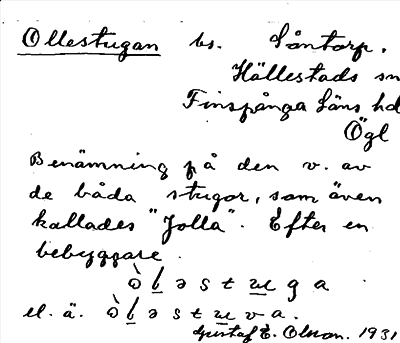 Ollestugan bs. Såntorp.
Hällestads sn
Finspånga läns hd
Ögl
Benämning på den v. av
de båda stugor, som även
kallades "Jolla". Efter en
bebyggare.
ò l ə s t u g a
el. ä. ò l ə s t u v a.
Gustaf E. Olsson. 1931